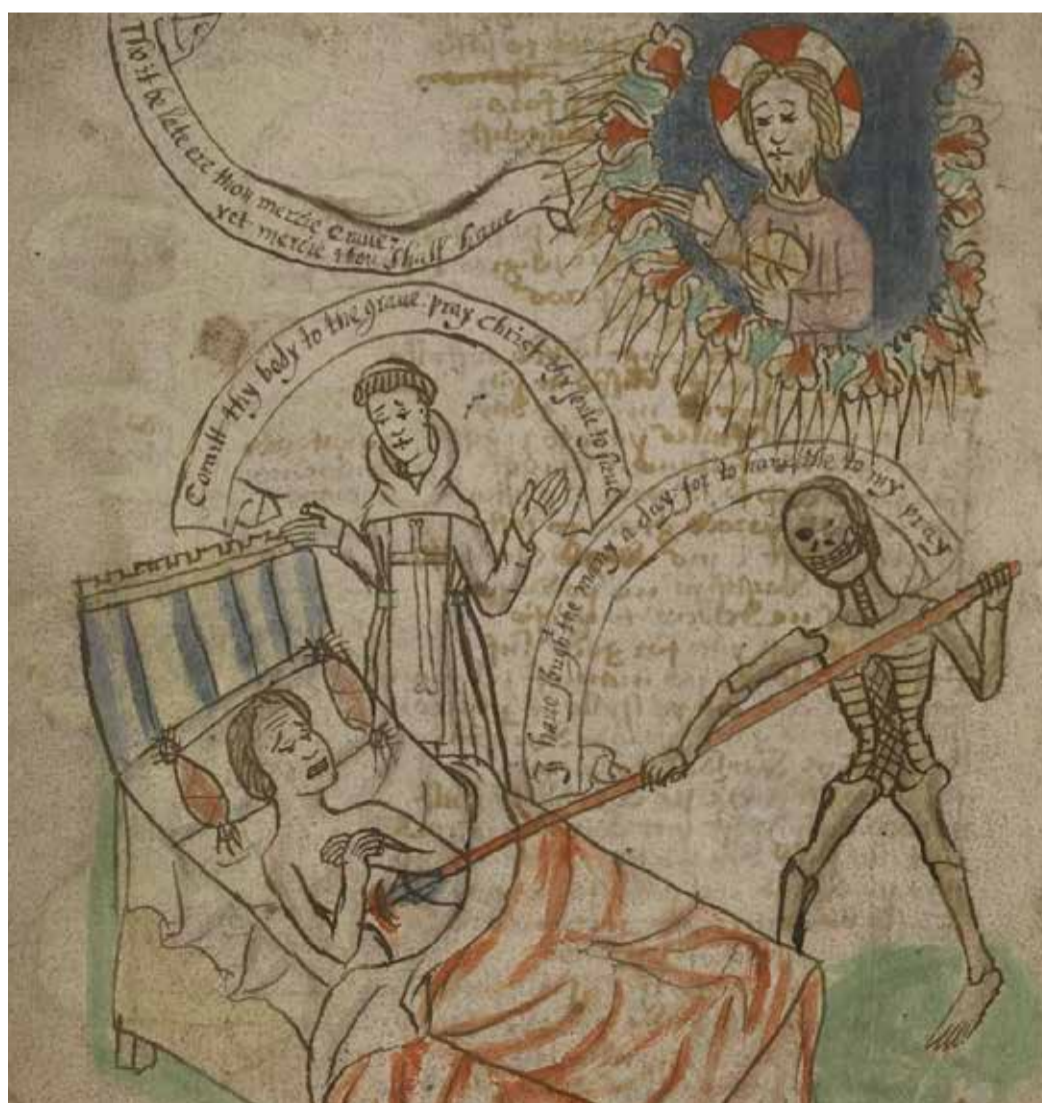 Tho it be late ere thou mercie craue
yet mercie thou shall haue
Comitt thy body to the graue pray christ thy soule to saue
I haue sought the many a day for to haue the to my pray